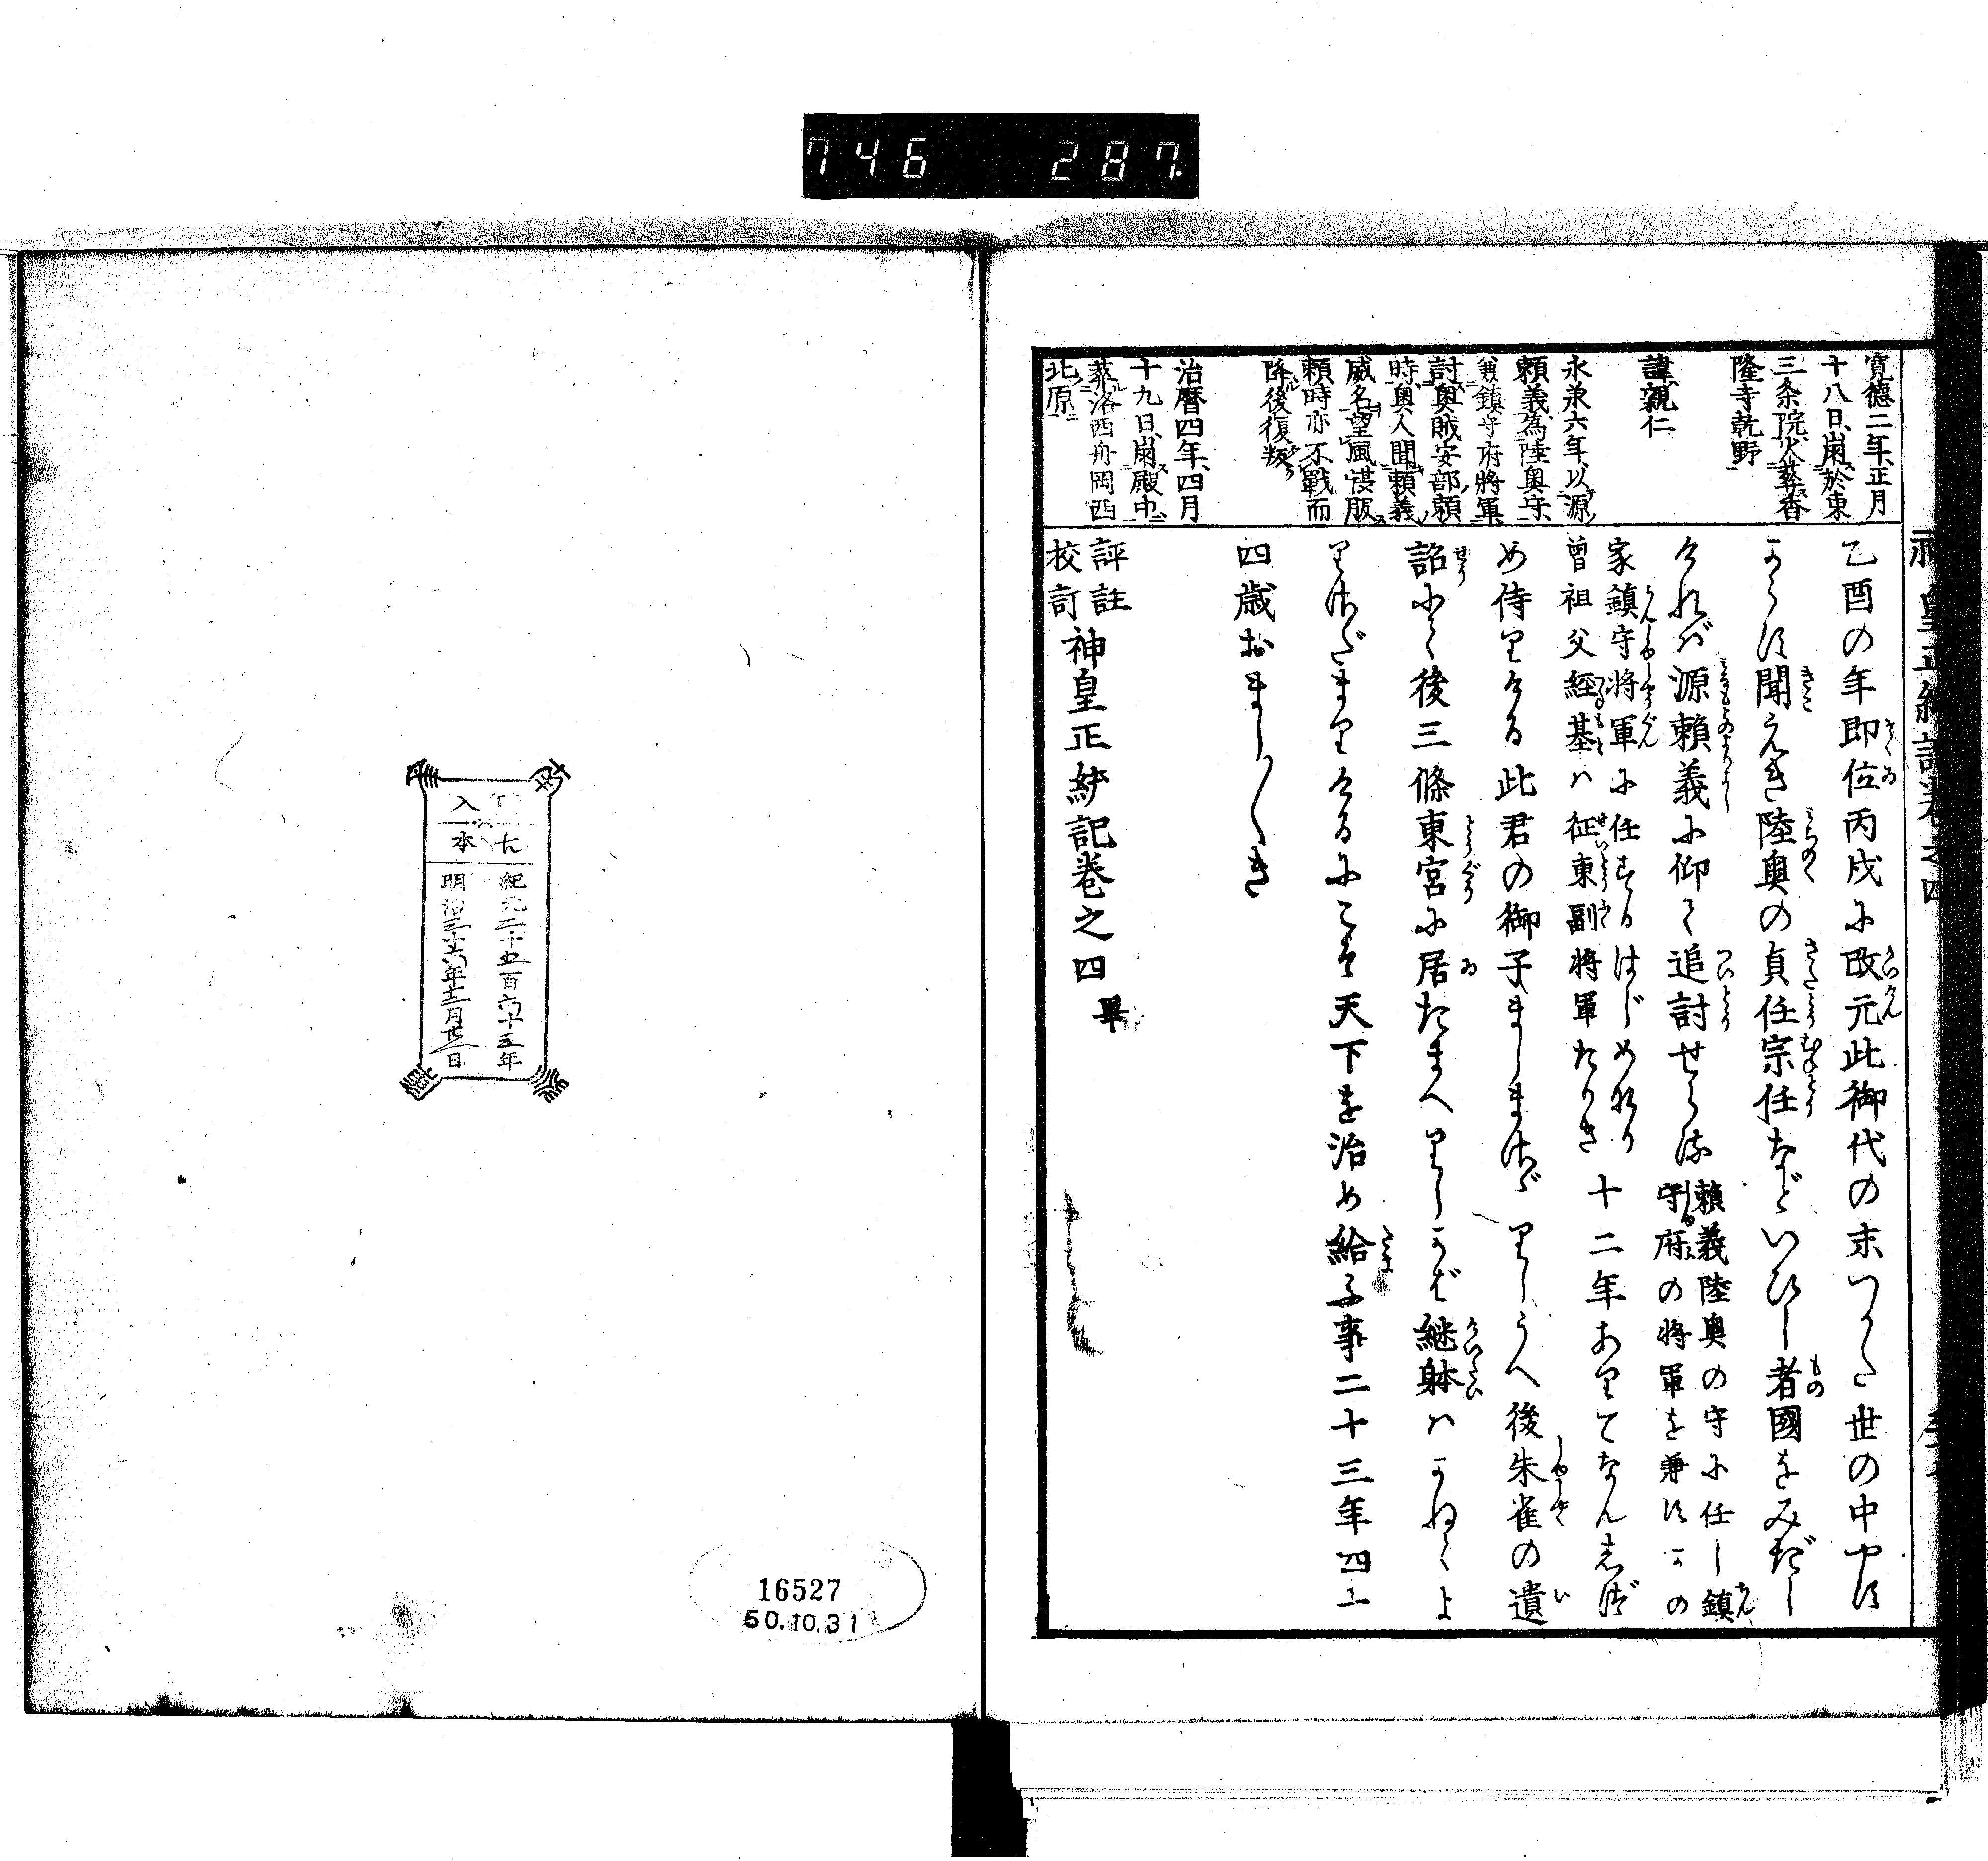 746 287.
寛德二年正月
十八日、崩於東
三条院火葬香
隆寺乾野
諱親仁
永承六年、以源
頼義為陸奥守
兼鎮守府將軍
討奥賊安部頼
時奥人聞頼義
威名望風懾服
頼時亦不戰而
降後復叛
治暦四年、四月
十九日、崩殿中
葬洛西舟岡西
北原
乙酉の年即位丙戌に改元此御代の末つかた世の中やす
からず聞えき陸奥の貞任宗任などいひし者國をみだし
ければ源頼義に仰て追討せらる
頼義陸奥の守に任し鎮
守府の将軍を兼すかの
家鎮守将軍に任するはじめなり
曽祖父經基ハ征東副将軍たりき
十二年ありてなんしづ
め侍りける此君の御子ましまさゞりしうへ後朱雀の遺
詔にて後三條東宮に居たまへりしかば継躰ハかねてよ
りさだまりけるにこそ天下を治め給ふ事二十三年四十
四歳おましましき
評註
校訂
神皇正統記巻之四 畢
神皇正統記巻之四
紀元二千五百六十五年
明治三十六年十二月廿二日
16527
50.10.31